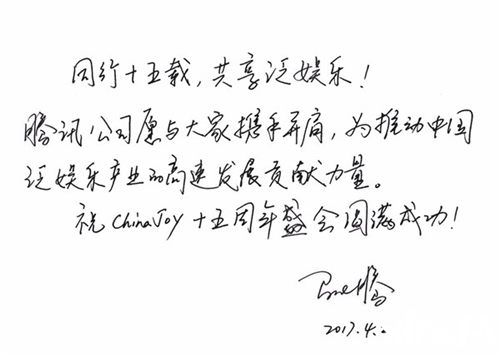 同行十五载，共享泛娱乐！
腾讯公司愿与大家携手并肩，为推动中国
泛娱乐产业的高速发展贡献力量。
祝ChinaJoy十五周年盛会圆满成功！
2017.4.